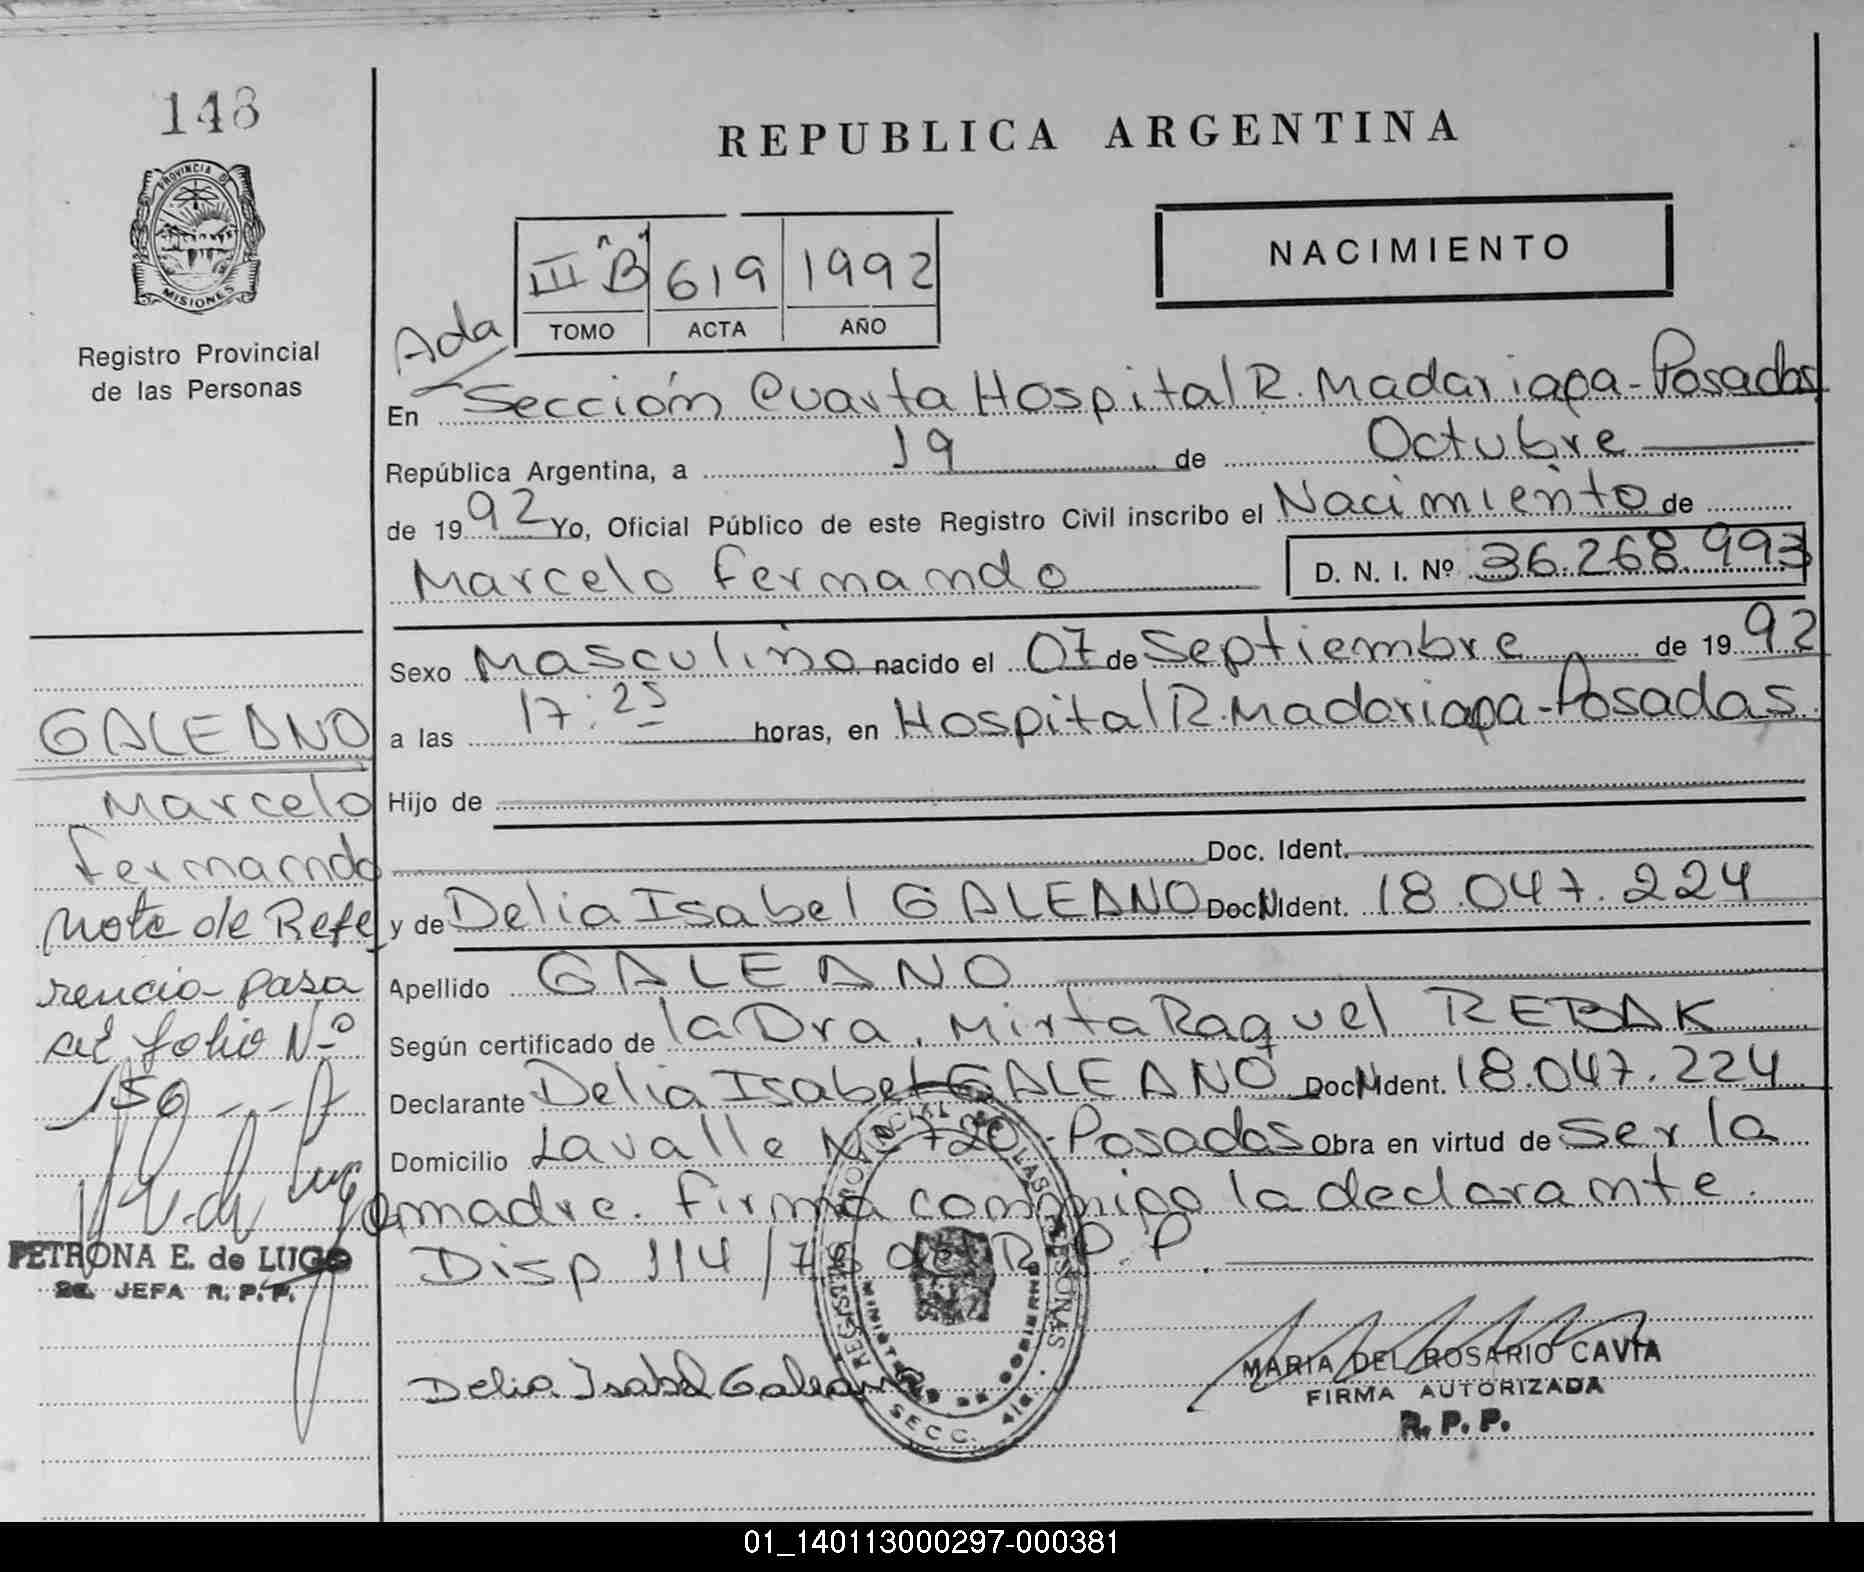 148
PROVINCIA DE
MISIONES
Registro Provincial
de las Personas
REPUBLICA ARGENTINA
NACIMIENTO
III "B" 619 1992
TOMO ACTA AÑO
Ada
En Sección Cuarta Hospital R. Madariaga - Posadas
República Argentina, a 19 de Octubre
de 1992 Yo, Oficial Público de este Registro Civil inscribo el Nacimiento de
Marcelo Fernando D. N. I. Nº 36.268.993
Sexo Masculino nacido el 07 de Septiembre de 1992
a las 17:25 horas, en Hospital R. Madariaga - Posadas.
Hijo de
Doc. Ident.
y de Delia Isabel GALEANO Doc N Ident. 18.047.224
Apellido GALEANO
Según certificado de la Dra. Mirta Raquel REBAK
Declarante Delia Isabel GALEANO Doc N Ident. 18.047.224
Domicilio Lavalle Nº 720 - Posadas Obra en virtud de ser la
madre. Firma conmigo la declarante.
Disp 114/78 del R.P.P.
Delia Isabel Galeano
MARIA DEL ROSARIO CAVIA
FIRMA AUTORIZADA
R. P. P.
GALEANO
Marcelo
Fernando
Nota de Refe
rencia pasa
al folio Nº
150
PETRONA E. de LUGO
JEFA R. P. P.
LAS PERSONAS
MINISTERIO DE GOBIERNO
SECC. 4ta.
01_140113000297-000381